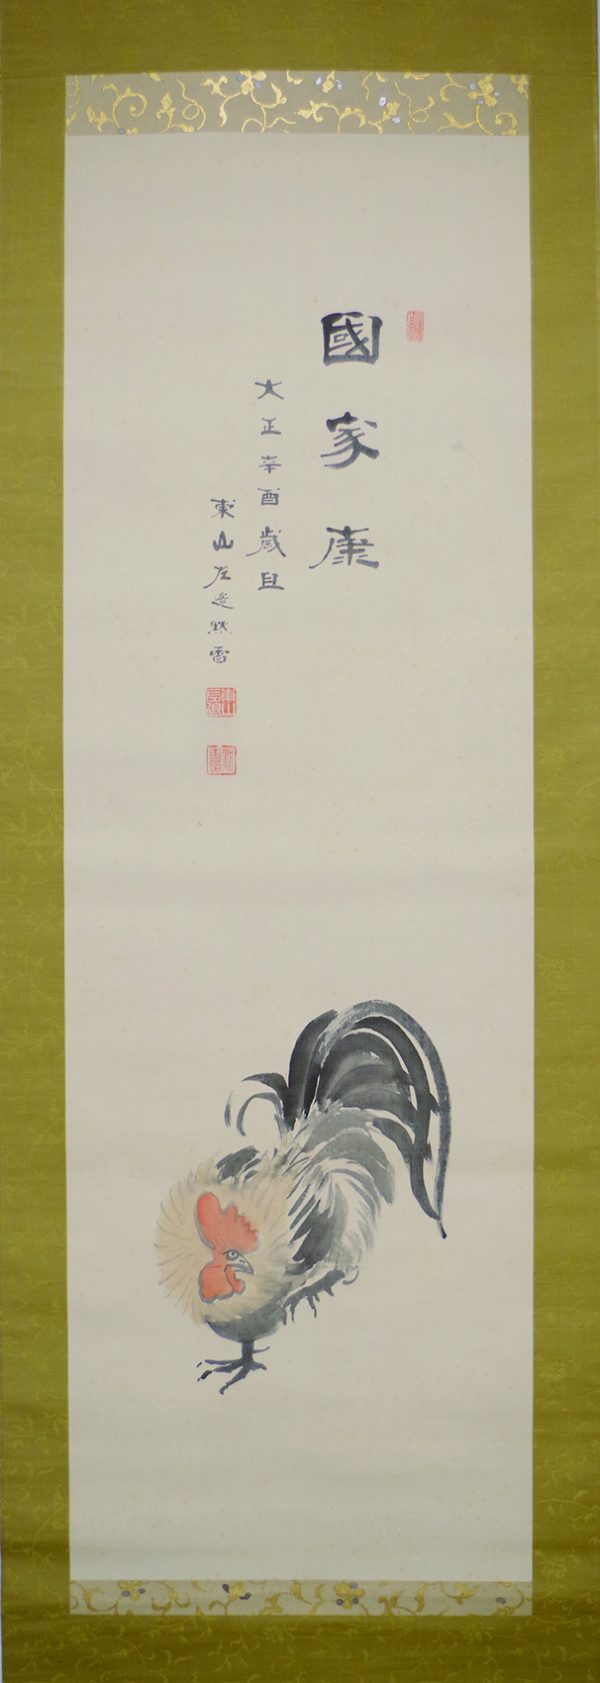 國家康
大正辛酉歳旦
東山左辺黙雷